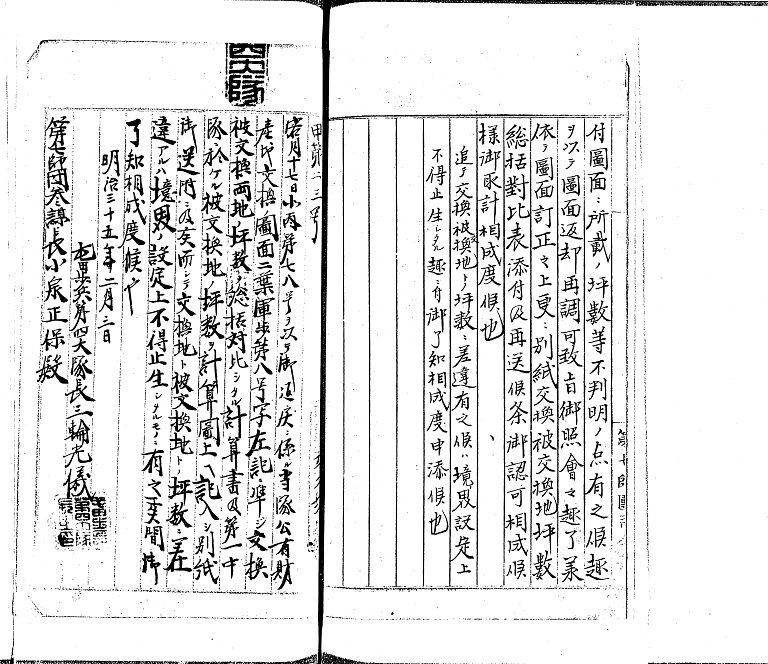 付圖面ニ所載ノ坪數等不判明ノ点有之候趣
ヲ以テ圖面返却再調可致旨御照會之趣了承
依テ圖面訂正之上更ニ別紙交換被交換地坪數
総括對比表添付及再送候条御認可相成候
様御取計相成度候也
追テ交換被換地トノ坪數ニ差違有之候ハ境界設定上
不得止生シタル趣ニ付御了知相成度申添候也
第七師團
甲第二三号
客月十七日小丙第七八号ヲ以テ御返戻ニ係ル当隊公有財
産地交換圖面二葉軍
第八号字左記ニ準シ交換
被交換両地ノ坪數ヲ総括対比シタル計算書及第一中
隊ニ於ケル被交換地ノ坪数ヲ計算圖上ヘ記入シ別紙
御送附ニ及候而シテ交換地ト被交換地ト坪数ニ差
違アルハ境界ノ設定上不得止生シタルモノニ有之候間御
了知相成度候也
明治三十五年二月三日
大隊長三輪光儀
第七師団参謀長小泉正保殿
大隊